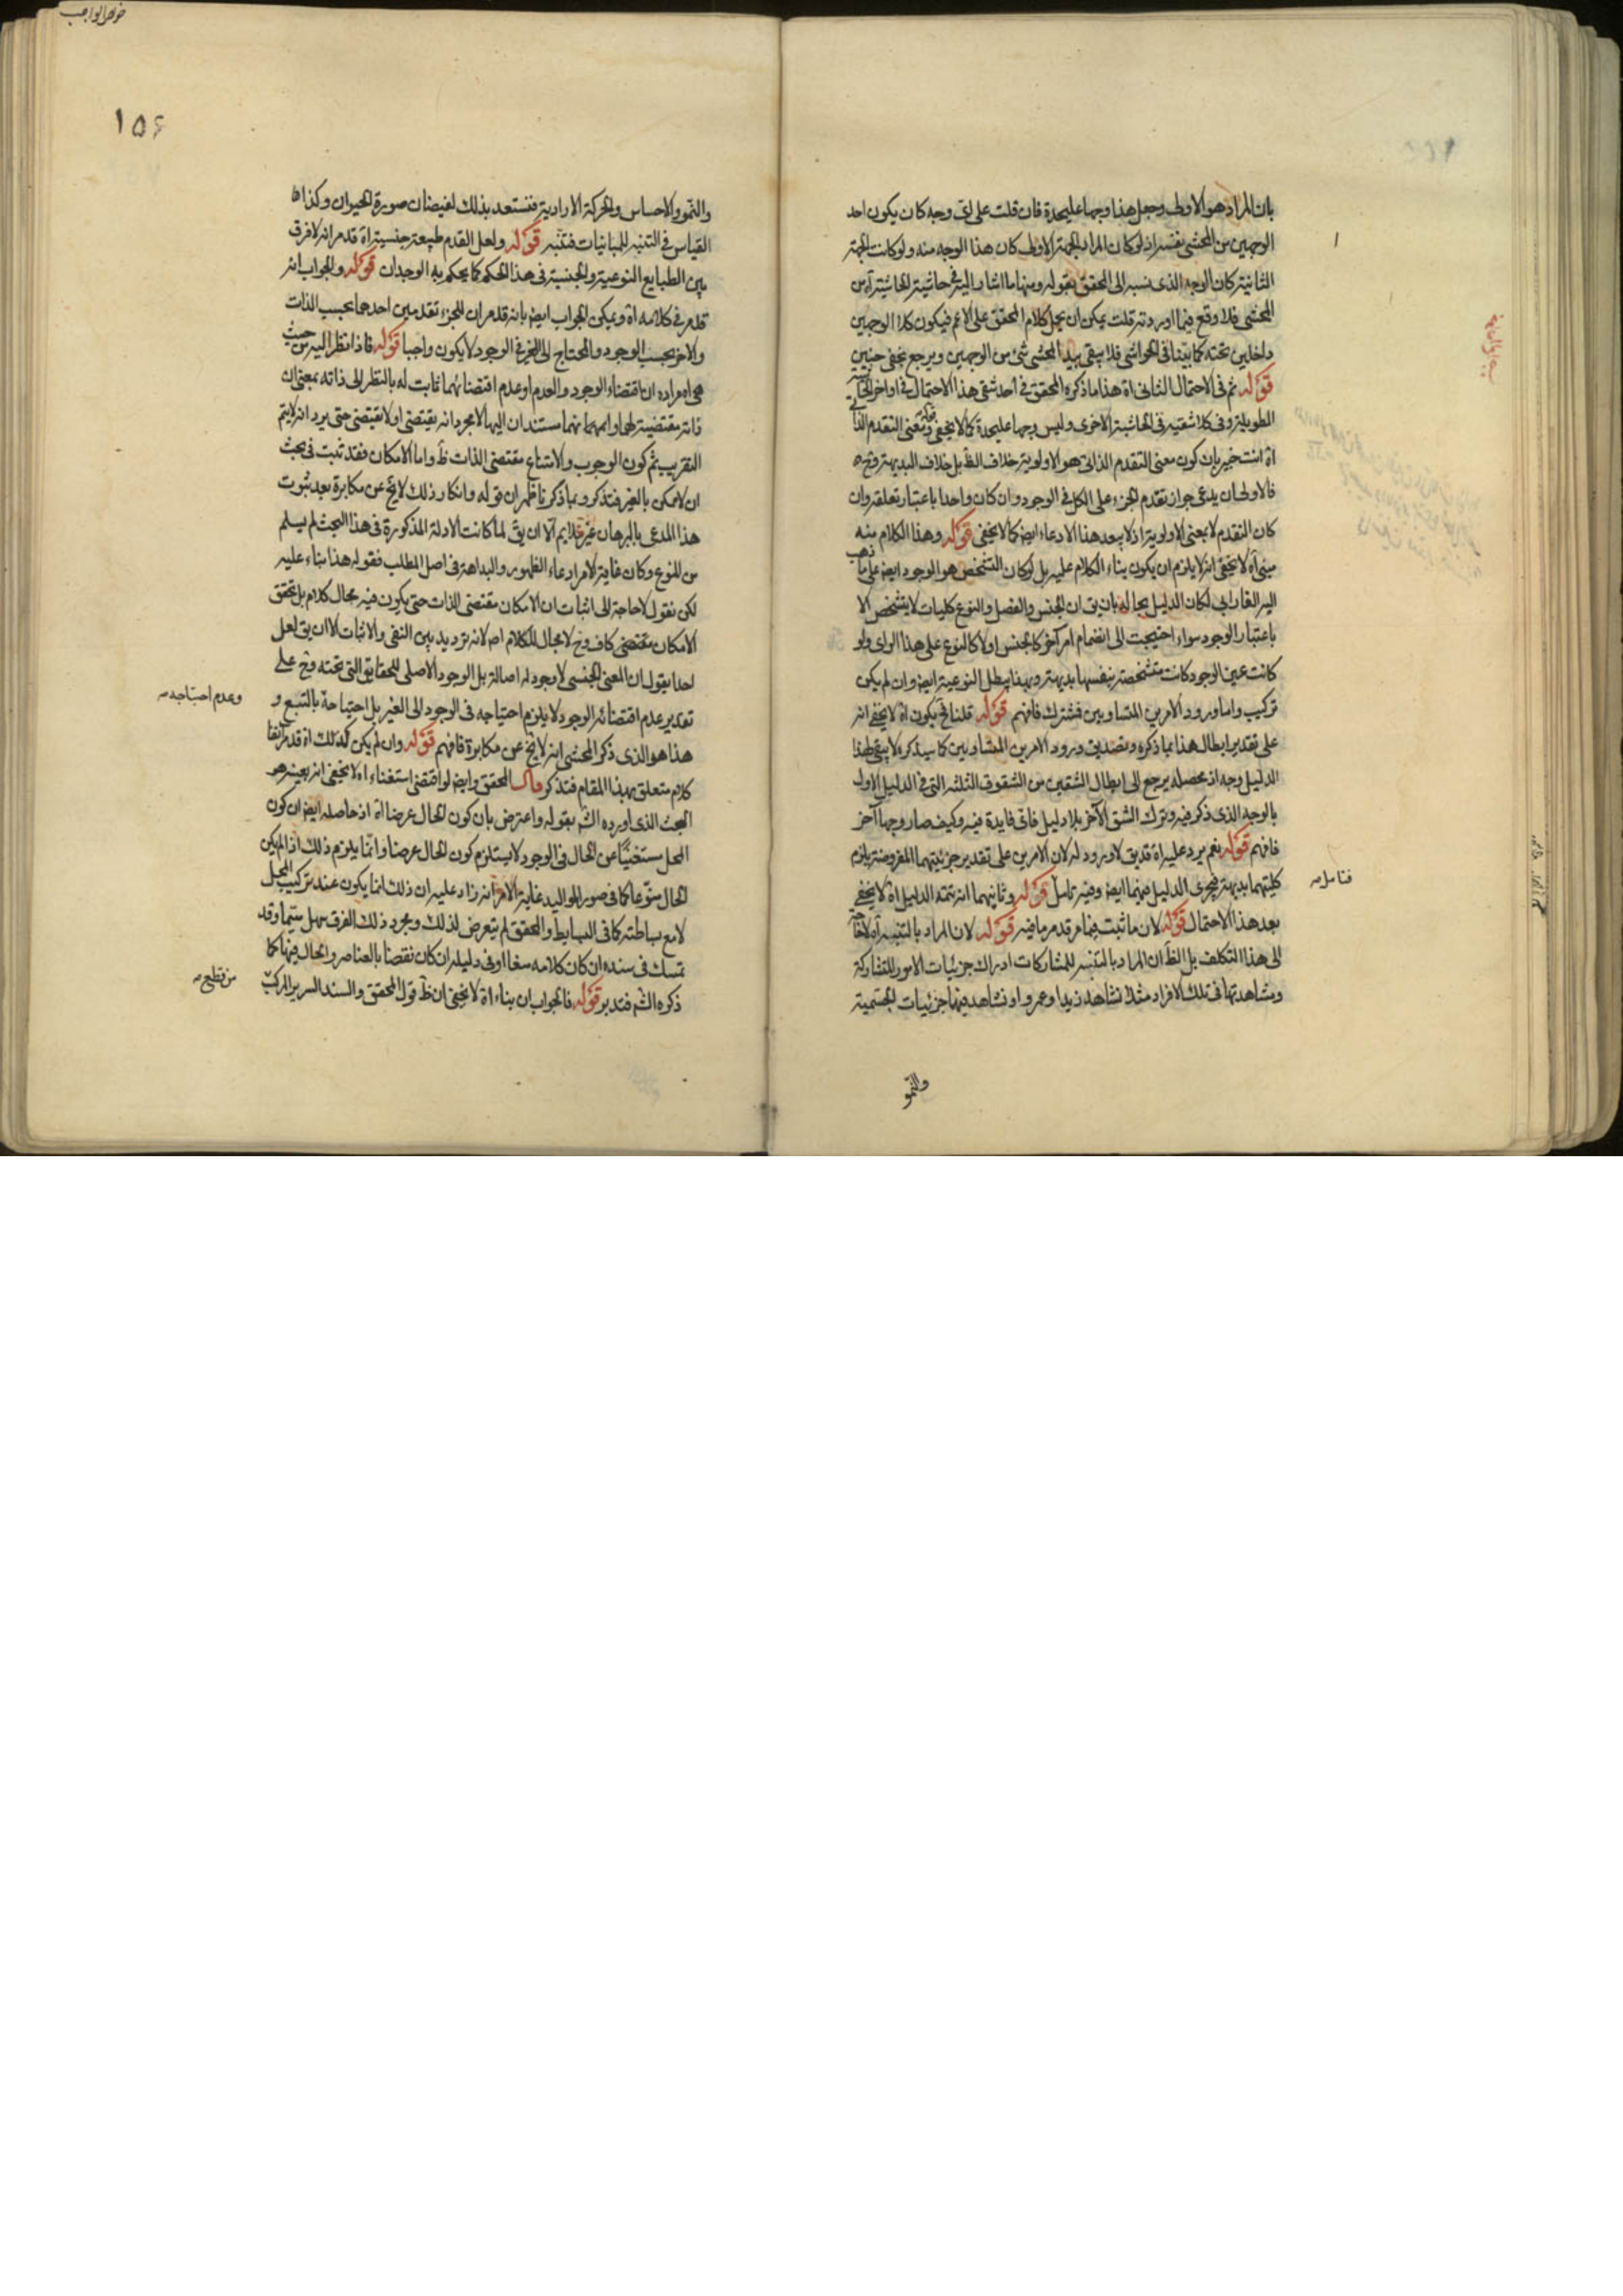 بان المراد هو الاولى وجعل هذا وجها عليحدة فان قلت على اى وجه كان يكون احد
الوجهين من المحشى نفسه اذ لو كان المراد الجهة الاولى كان هذا الوجه منه ولو كانت الجهة
الثانية كان الوجه الذى نسبه الى المحقق بقوله ومنها ما اشار اليه فى حاشية الحاشية آه من
المحشى فلا وقع فيما اوردته قلت يمكن ان يحمل كلام المحقق على الاعم فيكون كلا الوجهين
داخلين تحته كما بيّنا فى الحواشى فلا يبقى بيد المحشى شئ من الوجهين ويرجع بخفى حنين
قوله ثم فى الاحتمال الثانى اه هذا ما ذكره المحقق فى احد شقى هذا الاحتمال فى اواخر الحاشية
الطويلة وفى كلا شقيه فى الحاشية الاخرى وليس وجها عليحدة كما لا يخفى قوله ومعنى التقدم الذاتى
اه انت خبير بان كون معنى التقدم الذاتى هو الاولوية خلاف الظ بل خلاف البديهة وح
فالاولى ان يدعى جواز تقدم الجزء على الكل فى الوجود وان كان واحدا باعتبار تعلقه وان
كان التقدم لا بمعنى الاولوية اذ لا يبعد هذا الادعاء ايض كما لا يخفى قوله وهذا الكلام منه
مبنى آه لا يخفى انه لا يلزم ان يكون بناء الكلام عليه بل لو كان التشخص هو الوجود ايض على ما ذهب
اليه الفارابى لكان الدليل بحاله بان يق ان الجنس والفصل والنوع كليات لا يتشخص الا
باعتبار الوجود سواء احتيجت الى انضمام امر آخر كالجنس اولا كالنوع على هذا الراى ولو
كانت عين الوجود كانت متشخصة بنفسها بديهة وبهذا يبطل النوعية ايض وان لم يكن
تركيب واما ورود الامرين المتساويين فمشترك فافهم قوله قلنا فح يكون اه لا يخفى انه
على تقدير ابطال هذا بما ذكره وتصديق ورود الامرين المتساويين كما سيذكره لا يبقى لهذا
الدليل وجه اذ محصله يرجع الى ابطال الشقين من الشقوق الثلثة التى فى الدليل الاول
بالوجه الذى ذكر فيه وترك الشق الآخر بلا دليل فاى فايدة فيه وكيف صار وجها آخر
فافهم قوله نعم يرد عليه اه قد يق لا ورود له لان الامرين على تقدير جزئيتهما المفروضة يلزم
كليتهما بديهة فيجرى الدليل فيهما ايض وفيه تامل قوله وثانيهما انه تتمة الدليل اه لا يخفى
فتامل
بعد هذا الاحتمال قوله لان ما ثبت فيما مر قد مر ما فيه قوله لان المراد بالتنبه آه لا حاجة
الى هذا التكلف بل الظ ان المراد بالتنبه للمشاركات ادراك جزئيات الامور المتشاركة
ومشاهدتها فى تلك الافراد مثلا نشاهد زيدا وعمروا ونشاهد فيهما جزئيات الجسمية
والنمو
۱۵۶
والنمو والاحساس والحركة الارادية فنستعد بذلك لفيضان صورة الحيوان وكذا
القياس فى التنبه للمباينات فتنبه قوله ولعل القدم طبيعة جنسية اه قد مر انه لا فرق
بين الطبايع النوعية والجنسية فى هذا الحكم كما يحكم به الوجدان قوله والجواب انه
قد مر فى كلامه اه ويمكن الجواب ايض بانه قد مر ان للجزء تقدمين احدهما بحسب الذات
والاخر بحسب الوجود والمحتاج الى الغير فى الوجود لا يكون واجبا قوله فاذا نظر اليه من حيث
هى اه مراده ان اقتضاء الوجود والعدم او عدم اقتضائهما ثابت له بالنظر الى ذاته بمعنى ان
ذاته مقتضية لها
التقريب ثم كون الوجوب والامتناع مقتضى الذات ظ واما الامكان فقد ثبت فى بحث
ان لا ممكن بالغير فتذكر وبما ذكرنا ظهر ان قوله وانكار ذلك لا يخ عن مكابرة بعد ثبوت
هذا المدعى بالبرهان غير ملايم الا ان يق لما كانت الادلة المذكورة فى هذا البحث لم يسلم
من المنوع وكان غاية الامر ادعاء الظهور والبداهة فى اصل المطلب فقوله هذا بناء عليه
لكن نقول لا حاجة الى اثبات ان الامكان مقتضى الذات حتى يكون فيه مجال كلام بل تحقق
الامكان مقتضى كاف وح لا مجال للكلام اصلا لانه ترديد بين النفى والاثبات الا ان يق لعل
احدا يقول ان المعنى الجنسى لا وجود له اصالة بل الوجود الاصلى للحقايق التى تحته وح على
تقدير عدم اقتضائه الوجود لا يلزم احتياجه فى الوجود الى الغير بل احتياجه بالتبع و
وعدم احتياجه
هذا هو الذى ذكر المحشى انه لا يخ عن مكابرة فافهم قوله وان لم يكن كذلك اه قد مر آنفا
كلام متعلق بهذا المقام فتذكر قال المحقق وايض لو اقتضى استغناء اه لا يخفى انه بعينه هو
البحث الذى اورده الشه بقوله واعترض بان كون الحال عرضا اه اذ حاصله ايض ان كون
المحل مستغنيا عن الحال فى الوجود لا يستلزم كون الحال عرضا وانما يلزم ذلك اذا لم يكن
الحال منوعا كما فى صور المواليد غاية الامر انه زاد عليه ان ذلك انما يكون عند تركيب المحل
لا مع بساطته كما فى البسايط والمحقق لم يتعرض لذلك وبمجرد ذلك الفرق سهل سيما وقد
تمسك فى سنده ان كان كلامه منعا او فى دليله ان كان نقضا بالعناصر والحال فيها كما
ذكره الشه فتدبر قوله فالجواب ان بناء اه لا يخفى ان ظ قول المحقق والسند السرير المركب
من قطع